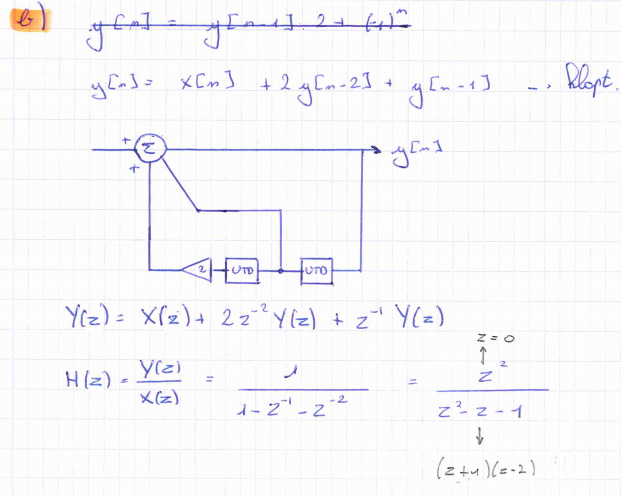 b)
y[n] = y[n-1] 2 + (-1)^n
y[n] = x[n] + 2 y[n-2] + y[n-1] → klopt.
+ Σ → y[n]
+
2 UTD UTD
Y(z) = X(z) + 2 z^-2 Y(z) + z^-1 Y(z)
z = 0
↑
H(z) = Y(z) / X(z) = 1 / (1 - z^-1 - z^-2) = z^2 / (z^2 - z - 1)
↓
(z+1)(z-2)